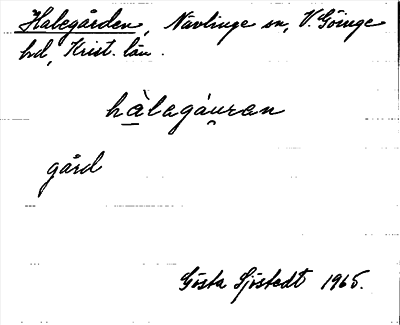 Halegården, Nävlinge sn, V. Göinge
hd, Krist. län.
hàlagáuran
gård
Gösta Sjöstedt 1965.